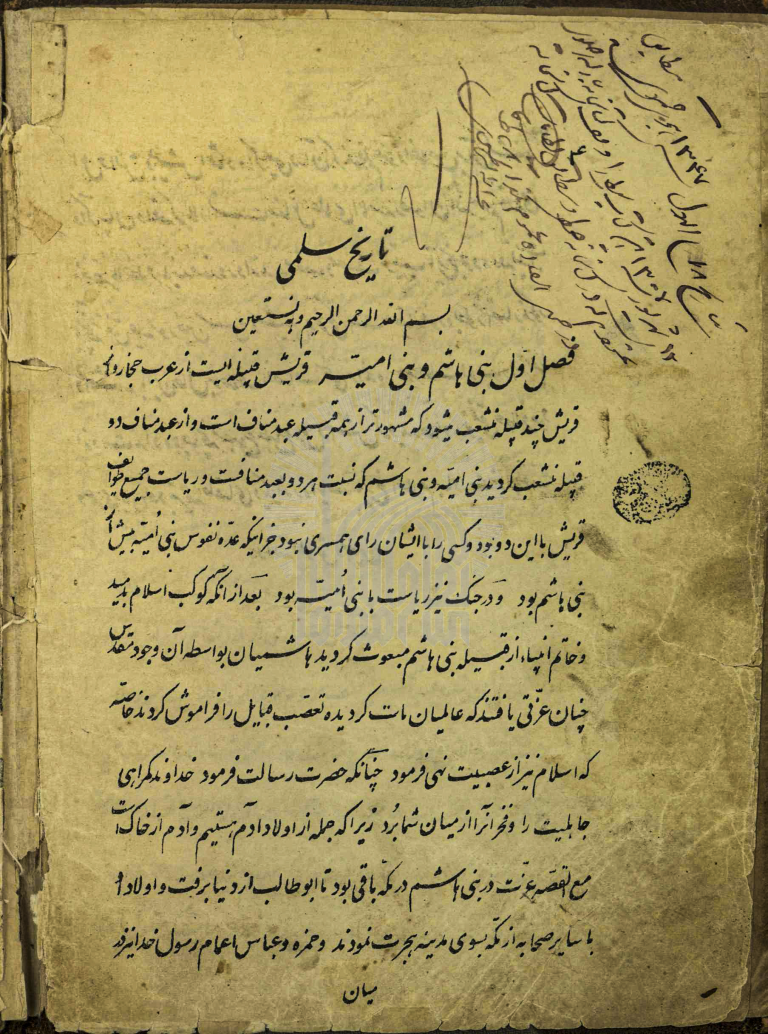 تاریخ سلمی
بسم الله الرحمن الرحیم وبه نستعین
فصل اول بنی هاشم و بنی امیه قریش قبیله ایست از عرب حجاز و از
قریش چند قبیله منشعب میشود که مشهورتر از همه قبیله عبد مناف است و از عبد مناف دو
قبیله منشعب گردید بنی امیّه و بنی هاشم که نسبت هر دو بعبد منافست و ریاست جمیع طوایف
قریش با این دو بود و کسی را با ایشان رای همسری نبود جز اینکه عدّه نفوس بنی اُمیّه بیش از
بنی هاشم بود و در جنک نیز ریاست با بنی اُمیّه بود بعد از انکه کوکب اسلام بدمید
و خاتم انبیاء از قبیله بنی هاشم مبعوث کردید هاشمیان بواسطه آن وجود مقدّس
چنان عزّتی یافتند که عالمیان مات کردیده تعصّب قبایل را فراموش کردند خاصّه
که اسلام نیز از عصبیت نهی فرمود چنانکه حضرت رسالت فرمود خداوند کمراهی
جاهلیت را و فخر آنرا از میان شما بُرد زیرا که جمله از اولاد ادم هستیم و آدم از خاک است
مع القصّه عزّت در بنی هاشم در مکّه باقی بود تا ابو طالب از دنیا برفت و اولاد او
با سایر صحابه از مکّه بسوی مدینه هجرت نمودند و حمزه و عباس اعمام رسول خدا نیز
میان